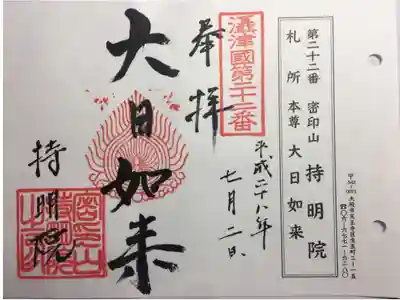 第二十二番 密印山 持明院
札所 本尊 大日如来
攝津國第二十二番
奉拝
平成二十八年
七月二日
大日如来
持明院